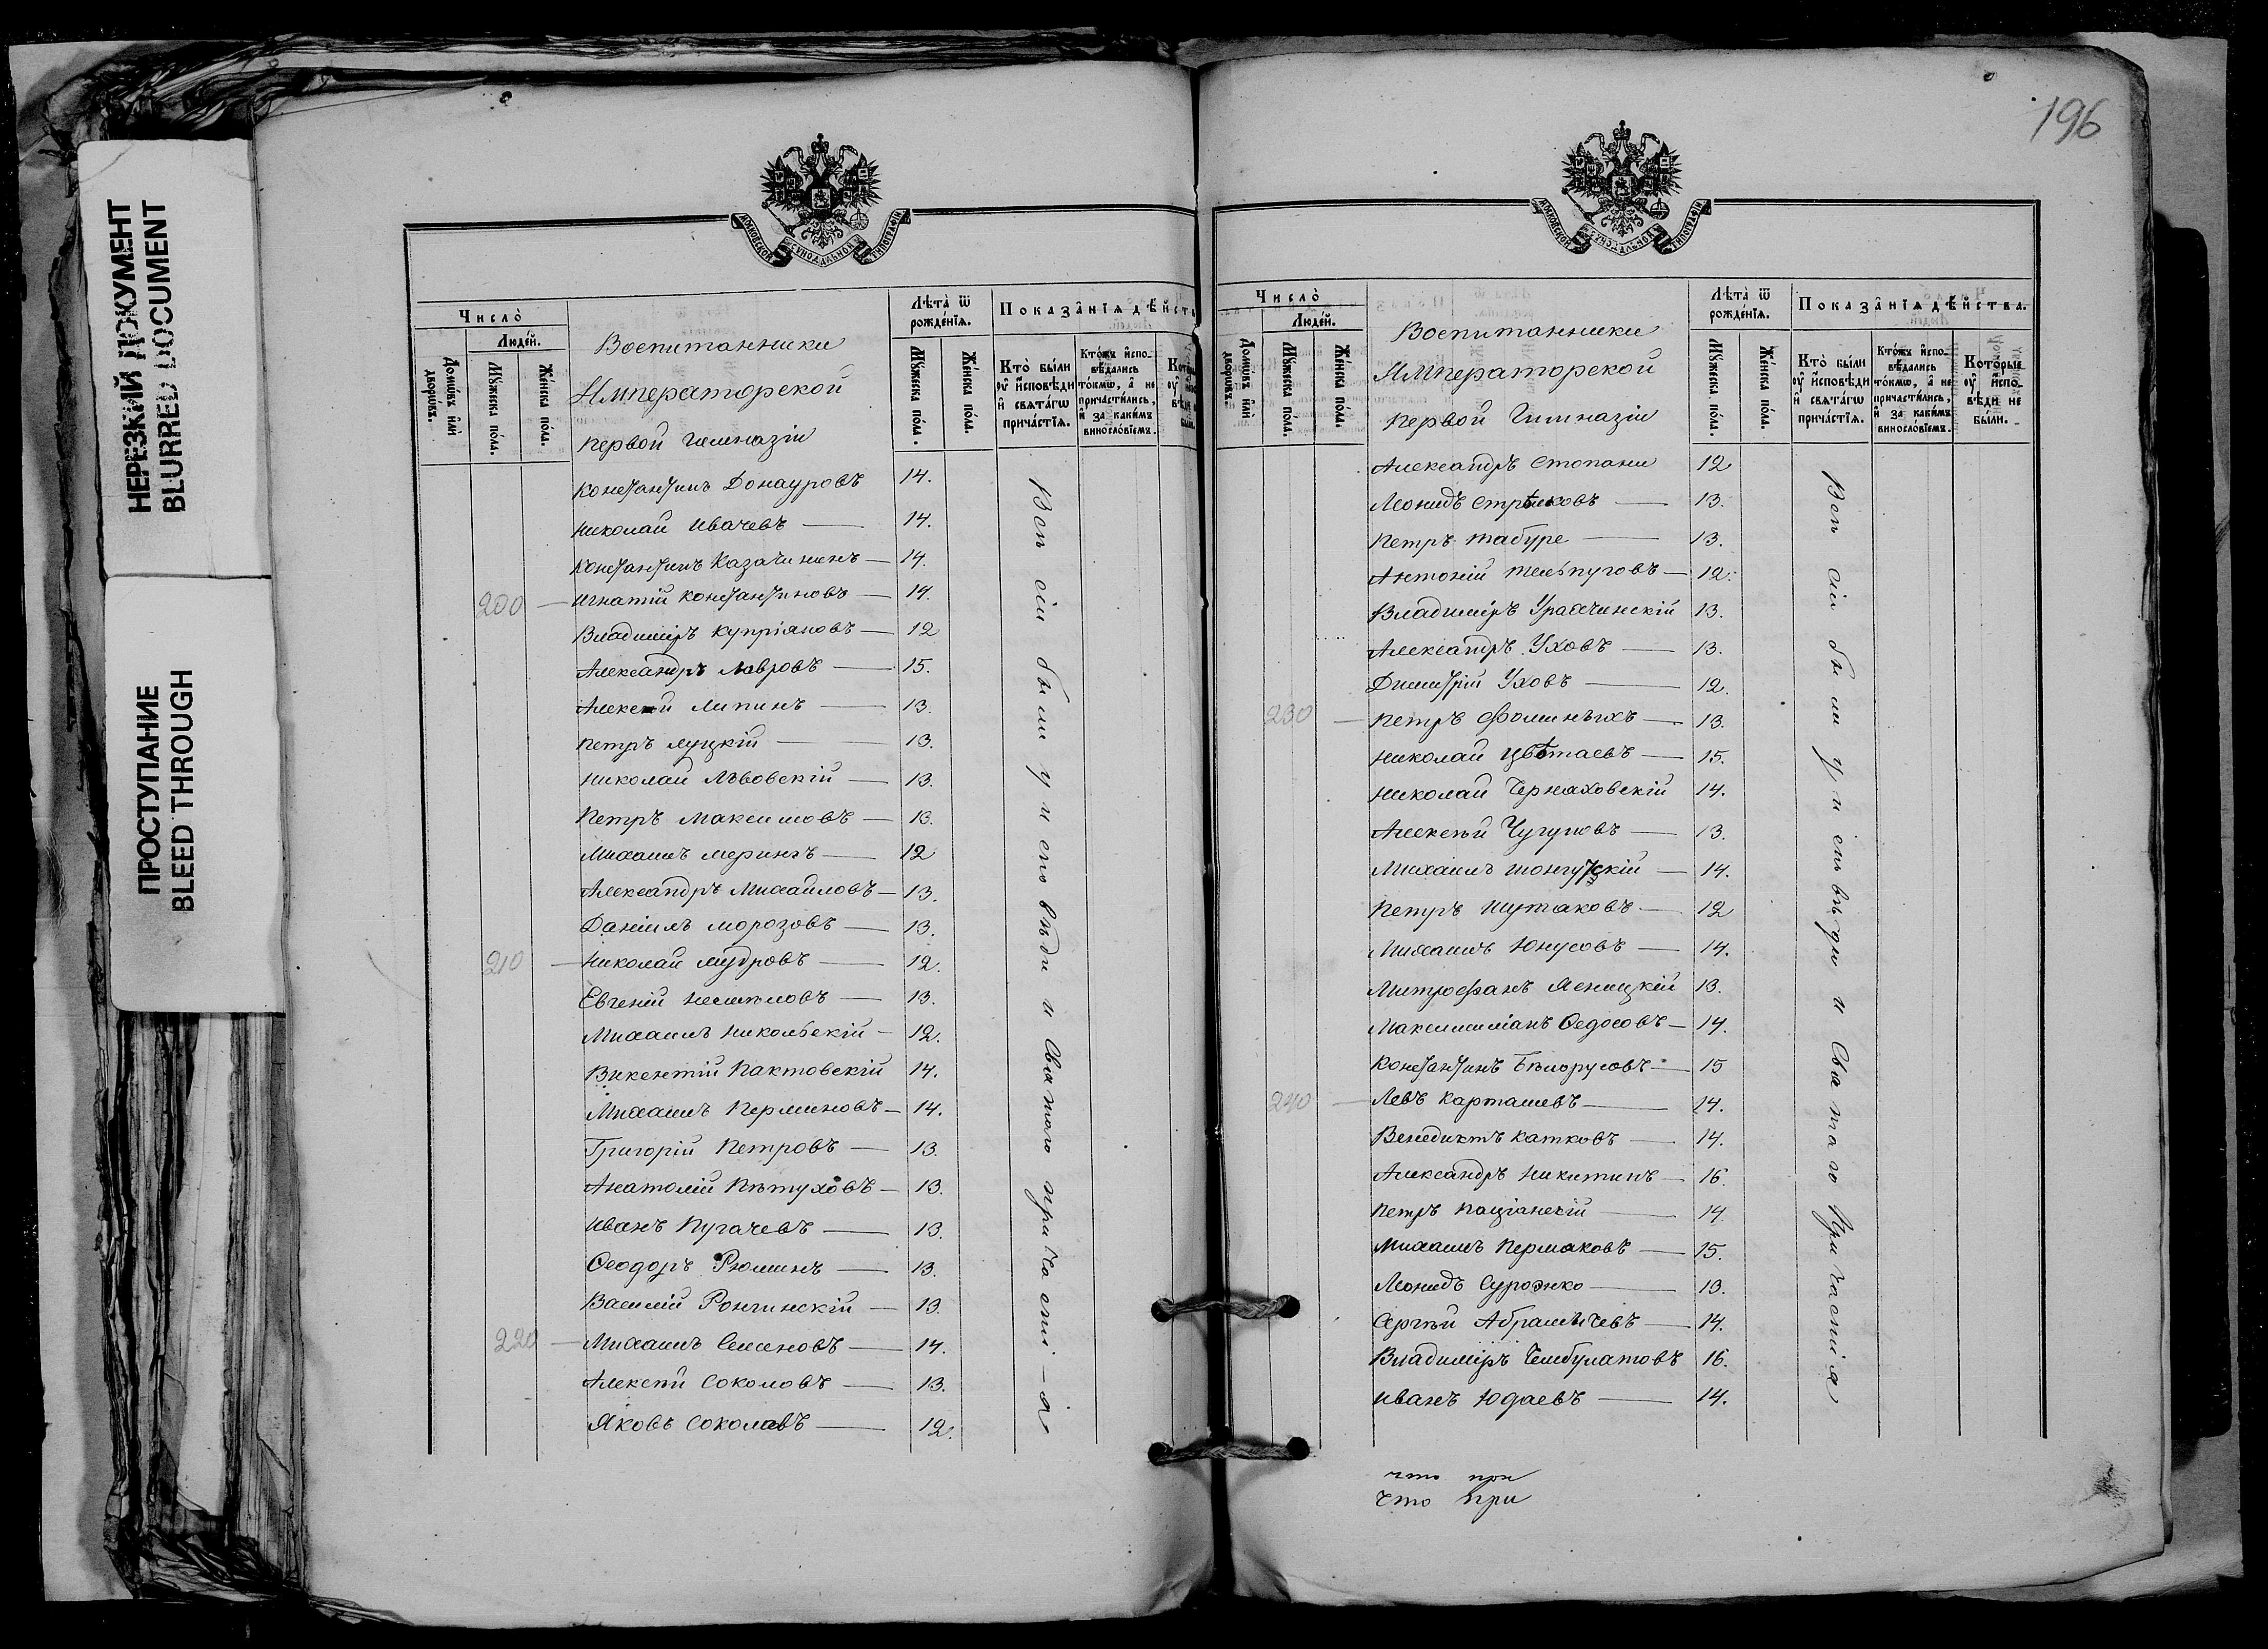 НЕРЕЗКИЙ ДОКУМЕНТ
BLURRED DOCUMENT
ПРОСТУПАНИЕ
BLEED THROUGH
МОСКОВСКОЙ СѴНОДАЛЬНОЙ ТИПОГРАФІИ
Число̀
Люде́й.
Домѡ́въ и҆лѝ дворѡ́въ.
Мꙋ́жеска по́ла.
Же́нска по́ла.
Воспитанники
Императорской
первой гимназіи
Лѣта̀ ѿ рожде́нїѧ.
Мꙋ́жеска по́ла.
Же́нска по́ла.
Показа̑нїѧ дѣ́йст
Кто̀ бы́ли оу҆ и҆́сповѣди и҆ свѧта́гѡ прича́стїѧ.
Кто́жъ и҆сповѣ́дались то́кмѡ, а҆ не причасти́лись, и҆ за каки́мъ винословїемъ.
Константинъ Донауровъ 14.
Николай Ивачевъ — 14.
Константинъ Казачининъ — 14.
200 — Игнатій Константиновъ — 14.
Владиміръ Купріяновъ — 12
Александръ Лавровъ — 15.
Алексѣй Липинъ — 13.
Петръ Луцкій — 13.
Николай Львовскій — 13.
Петръ Максимовъ — 13.
Михаилъ Мерингъ — 12
Александръ Михайловъ — 13.
Даніилъ Морозовъ — 13.
210 — Николай Мудровъ — 12.
Евгеній — 13.
Михаилъ Никольскій — 12.
Викентій Пактовскій 14.
Михаилъ Перминовъ — 14.
Григорій Петровъ — 13.
Анатолій Пѣтуховъ — 13.
Иванъ Пугачевъ — 13.
Ѳеодоръ Рюминъ — 13.
Василій Рончинскій — 13.
220 — Михаилъ Семеновъ — 14.
Алексѣй Соколовъ — 13.
Яковъ Соколовъ — 12.
Всѣ сіи были у исповѣди и Святаго причастія
196
МОСКОВСКОЙ СѴНОДАЛЬНОЙ ТИПОГРАФІИ
Число̀
Люде́й.
Домѡ́въ и҆лѝ дворѡ́въ.
Мꙋ́жеска по́ла.
Же́нска по́ла.
Воспитанники
Императорской
первой Гимназіи
Лѣта̀ ѿ рожде́нїѧ.
Мꙋ́жеска по́ла.
Же́нска по́ла.
Показа̑нїѧ дѣ́йства.
Кто̀ бы́ли оу҆ и҆́сповѣди и҆ свѧта́гѡ прича́стїѧ.
Кто́жъ и҆сповѣ́дались то́кмѡ, а҆ не причасти́лись, и҆ за каки́мъ винословїемъ.
Кото́рые оу҆ и҆́сповѣди не бы́ли.
Александръ Стопани 12
Леонидъ Стрѣлковъ — 13.
Петръ Табуре — 13.
Антоній Тельпуговъ — 12.
Владиміръ 13.
Александръ Уховъ — 13.
Димитрій Уховъ — 12.
230 — Петръ Фоминыхъ — 13.
Николай Цвѣтаевъ — 15.
Николай Черняховскій 14.
Алексѣй Чугуновъ — 13.
Михаилъ Шонгутскій — 14.
Петръ Шутаковъ — 12
Михаилъ Юнусовъ — 14.
Митрофанъ Ясницкій 13.
Максимиліанъ Ѳедосовъ — 14.
Константинъ Бѣлорусовъ — 15
240 — Левъ Карташевъ — 14.
Венедиктъ Катковъ — 14.
Александръ Никитинъ — 16.
Петръ Паціанскій — 14
Михаилъ Пермяковъ — 15.
Леонидъ — 13.
Сергѣй Абрамычевъ — 14.
Владиміръ Чембулатовъ 16.
Иванъ Юдаевъ — 14.
Всѣ сіи были у исповѣди и Святаго Причастія
что при
что при